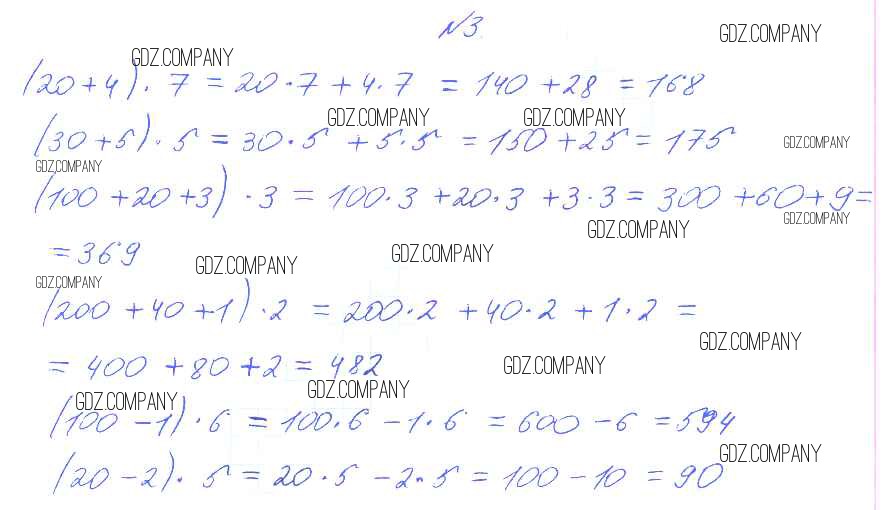 №3.
GDZ.COMPANY
GDZ.COMPANY
(20+4)·7 = 20·7 + 4·7 = 140 + 28 = 168
GDZ.COMPANY
GDZ.COMPANY
(30+5)·5 = 30·5 + 5·5 = 150 + 25 = 175
GDZ.COMPANY
GDZ.COMPANY
(100 + 20 + 3)·3 = 100·3 + 20·3 + 3·3 = 300 + 60 + 9 =
GDZ.COMPANY
GDZ.COMPANY
= 369
GDZ.COMPANY
GDZ.COMPANY
GDZ.COMPANY
(200 + 40 + 1)·2 = 200·2 + 40·2 + 1·2 =
GDZ.COMPANY
= 400 + 80 + 2 = 482
GDZ.COMPANY
GDZ.COMPANY
GDZ.COMPANY
(100 - 1)·6 = 100·6 - 1·6 = 600 - 6 = 594
GDZ.COMPANY
(20 - 2)·5 = 20·5 - 2·5 = 100 - 10 = 90